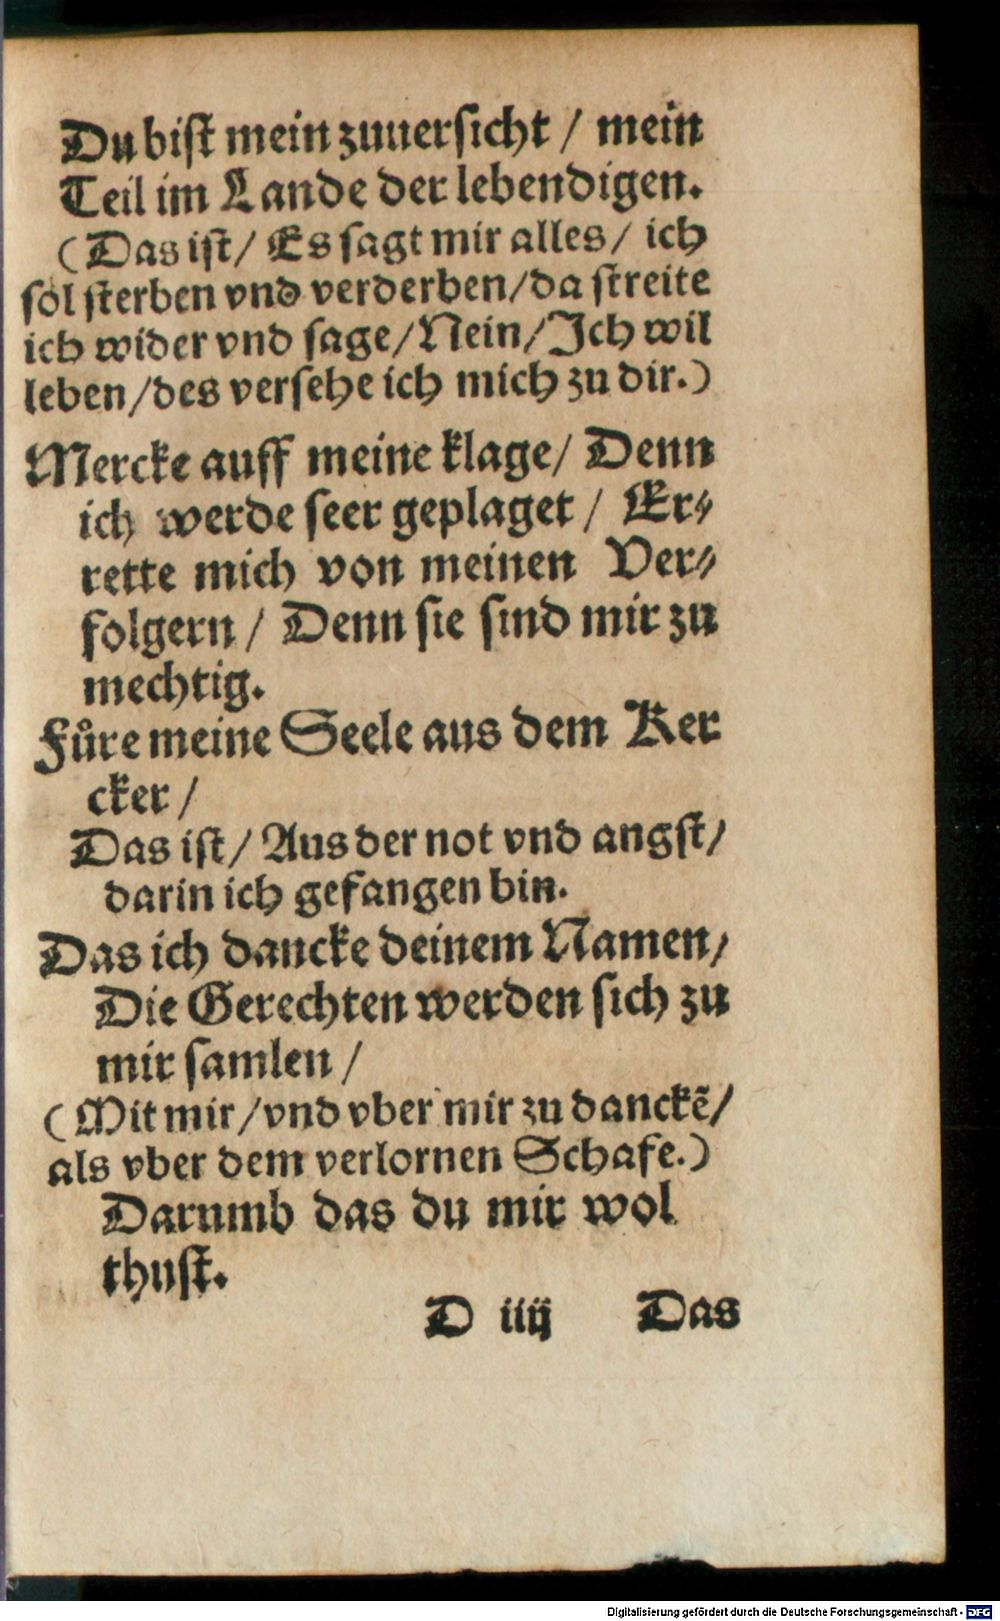 Du bist mein zuuersicht / mein
Teil im Lande der lebendigen.
(Das ist / Es sagt mir alles / ich
sol sterben vnd verderben / da streite
ich wider vnd sage / Nein / Ich wil
leben / des versehe ich mich zu dir.)
Mercke auff meine klage / Denn
ich werde seer geplaget / Er⸗
rette mich von meinen Ver⸗
folgern / Denn sie sind mir zu
mechtig.
Fůre meine Seele aus dem Ker
cker /
Das ist / Aus der not vnd angst /
darin ich gefangen bin.
Das ich dancke deinem Namen /
Die Gerechten werden sich zu
mir samlen /
(Mit mir / vnd vber mir zu danckẽ /
als vber dem verlornen Schafe.)
Darumb das du mir wol
thust.
D iiij Das
Digitalisierung gefördert durch die Deutsche Forschungsgemeinschaft - DFG